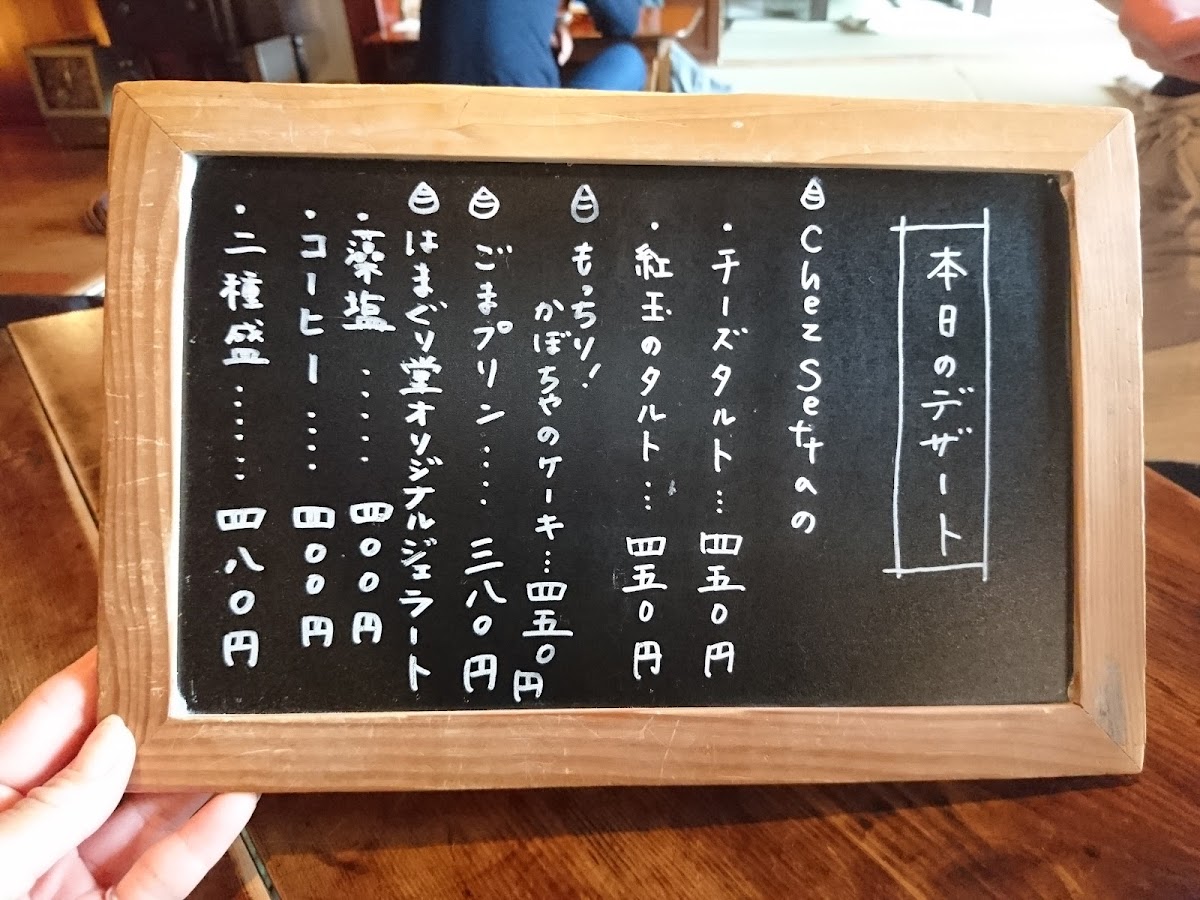 本日のデザート
Chez Settaの
・チーズタルト…四五〇円
・紅玉のタルト…四五〇円
もっちり!
かぼちゃのケーキ…四五〇円
ごまプリン……三八〇円
はまぐり堂オリジナルジェラート
・藻塩……四〇〇円
・コーヒー……四〇〇円
・二種盛……四八〇円